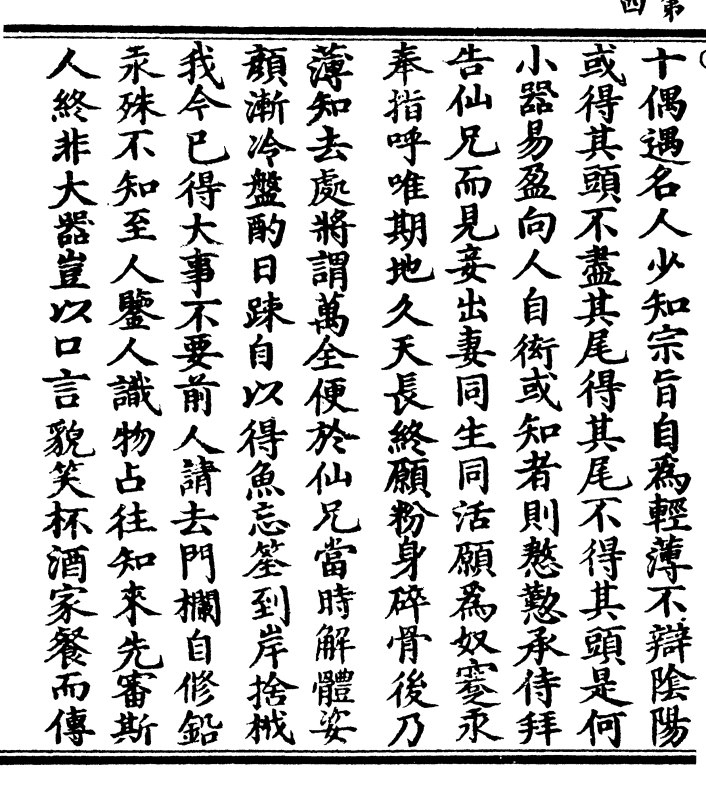 第
四
十偶遇名人少知宗旨自爲輕薄不辯陰陽
或得其頭不盡其尾得其尾不得其頭是何
小器易盈向人自衒或知者則慇懃承侍拜
告仙兄而見妾出妻同生同活願爲奴寠汞
奉指呼唯期地久天長終願粉身碎骨後乃
薄知去處將謂萬全便於仙兄當時解體姿
顏漸冷盤酌日踈自以得魚忘筌到岸捨栰
我今已得大事不要前人請去門欄自修鉛
汞殊不知至人鑒人識物占往知來先審斯
人終非大器豈以口言貌笑杯酒家餐而傳